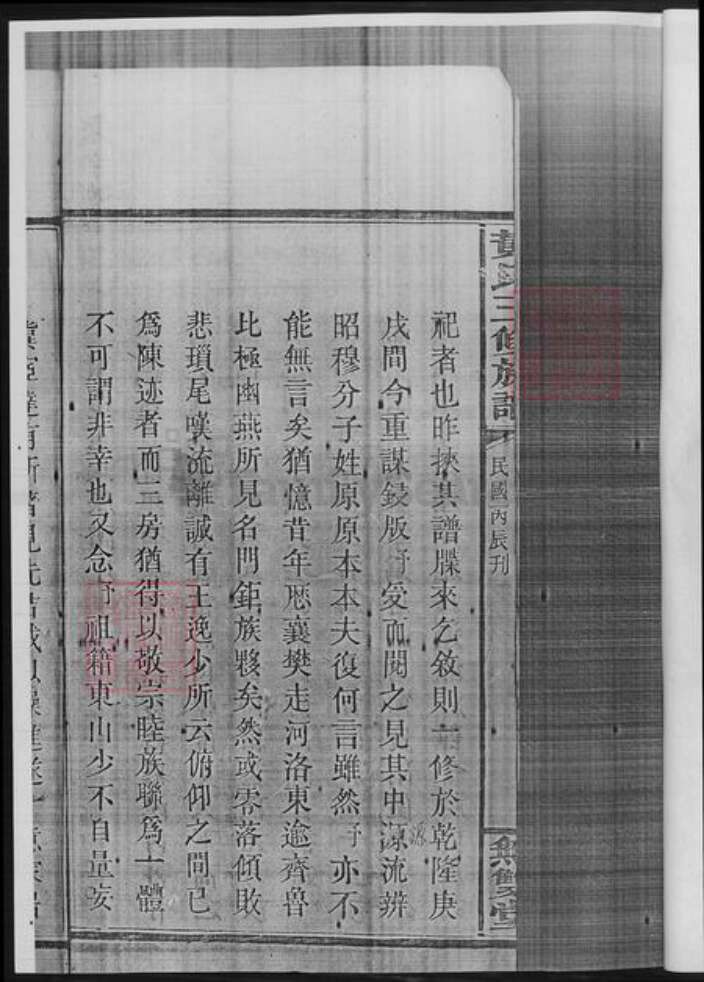 黃氏三修族譜
民國丙辰刊
無雙堂
祀者也昨挾其譜牒來乞敘則一修於乾隆庚
戌間今重謀鋟版予受而閱之見其中源流辨
昭穆分子姓原原本本夫復何言雖然予亦不
能無言矣猶憶昔年歷襄樊走河洛東逾齊魯
北極幽燕所見名門鉅族夥矣然或零落傾敗
悲瑣尾嘆流離誠有王逸少所云俯仰之間已
爲陳迹者而三房猶得以敬宗睦族聯爲一體
不可謂非幸也又念予祖籍東山少不自量妄